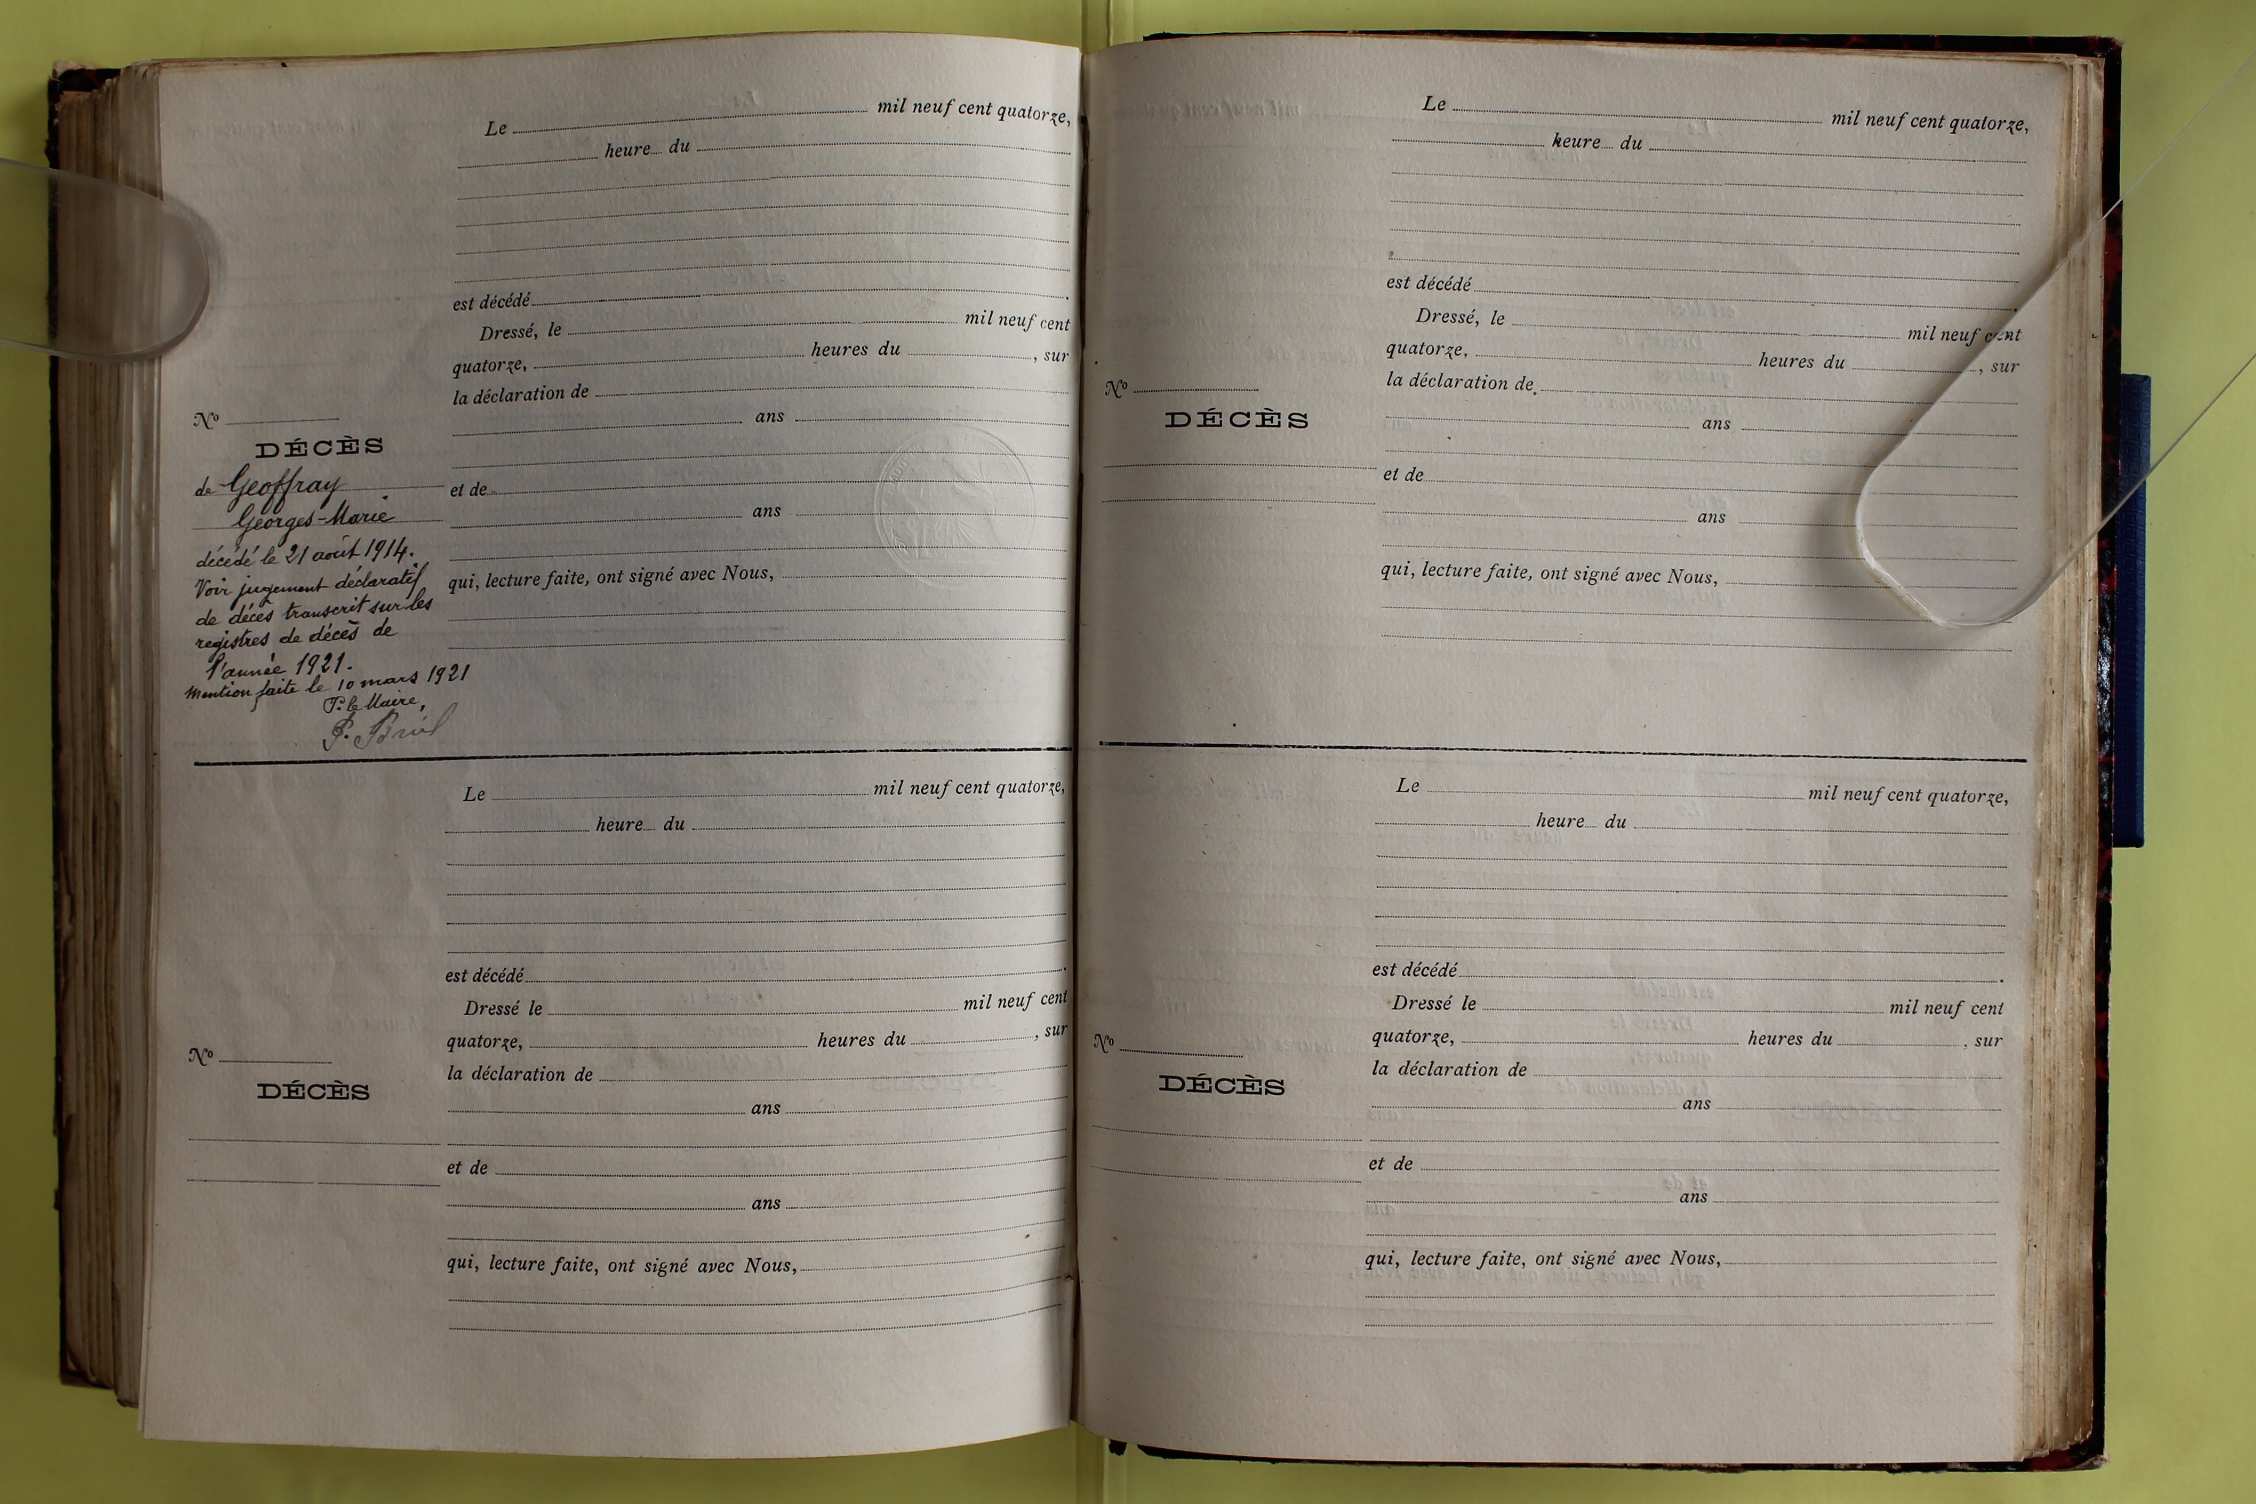 Le mil neuf cent quatorze,
heure du
est décédé .
Dressé, le mil neuf cent
quatorze, heures du , sur
la déclaration de
ans
et de
ans
qui, lecture faite, ont signé avec Nous,
No
DÉCÈS
de Geoffray
Georges-Marie
décédé le 21 août 1914.
Voir jugement déclaratif
de décès transcrit sur les
registres de décès de
l'année 1921.
Mention faite le 10 mars 1921
P. le Maire,
Le mil neuf cent quatorze,
heure du
est décédé .
Dressé le mil neuf cent
quatorze, heures du , sur
No
DÉCÈS
la déclaration de
ans
et de
ans
qui, lecture faite, ont signé avec Nous,
Le mil neuf cent quatorze,
heure du
est décédé .
Dressé, le mil neuf cent
quatorze, heures du , sur
No
DÉCÈS
la déclaration de
ans
et de
ans
qui, lecture faite, ont signé avec Nous,
Le mil neuf cent quatorze,
heure du
est décédé .
Dressé le mil neuf cent
quatorze, heures du , sur
No
DÉCÈS
la déclaration de
ans
et de
ans
qui, lecture faite, ont signé avec Nous,